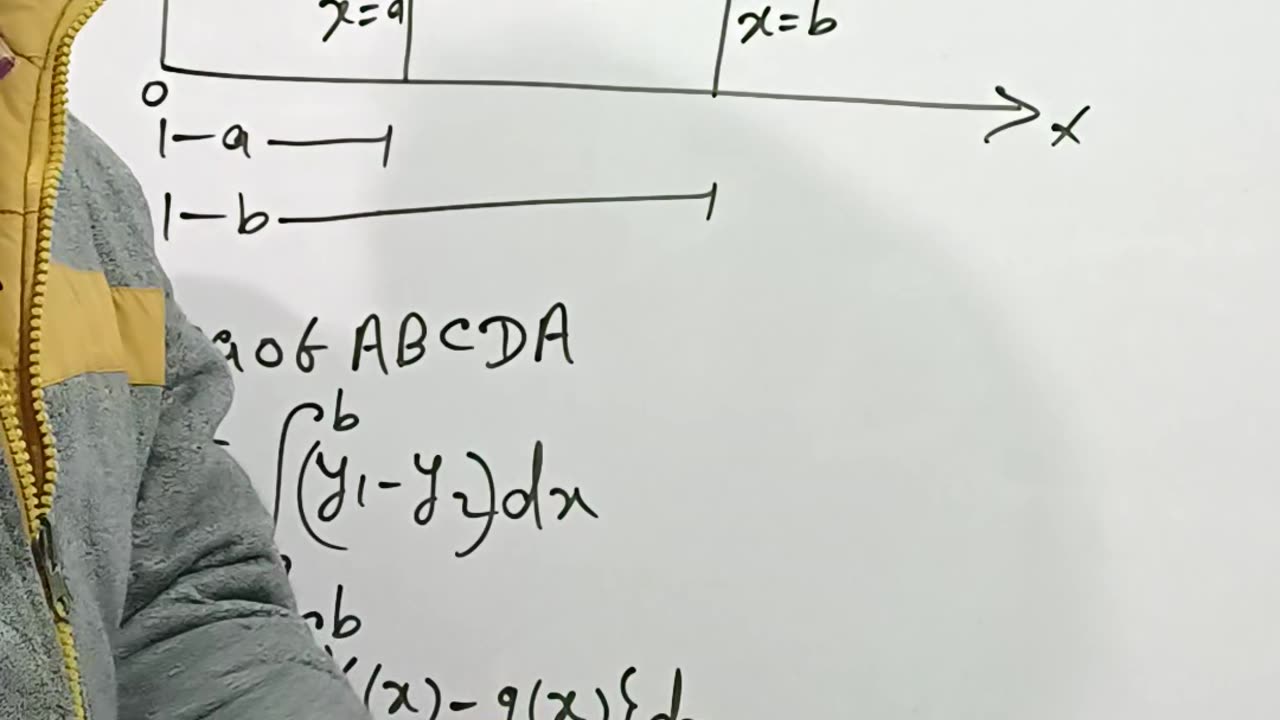 x=a x=b
0
x
a
b
of ABCDA
∫ b (y₁-y₂)dx
b
(x)-g(x)}d